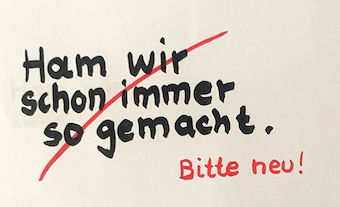 Ham wir
schon immer
so gemacht.
Bitte neu!